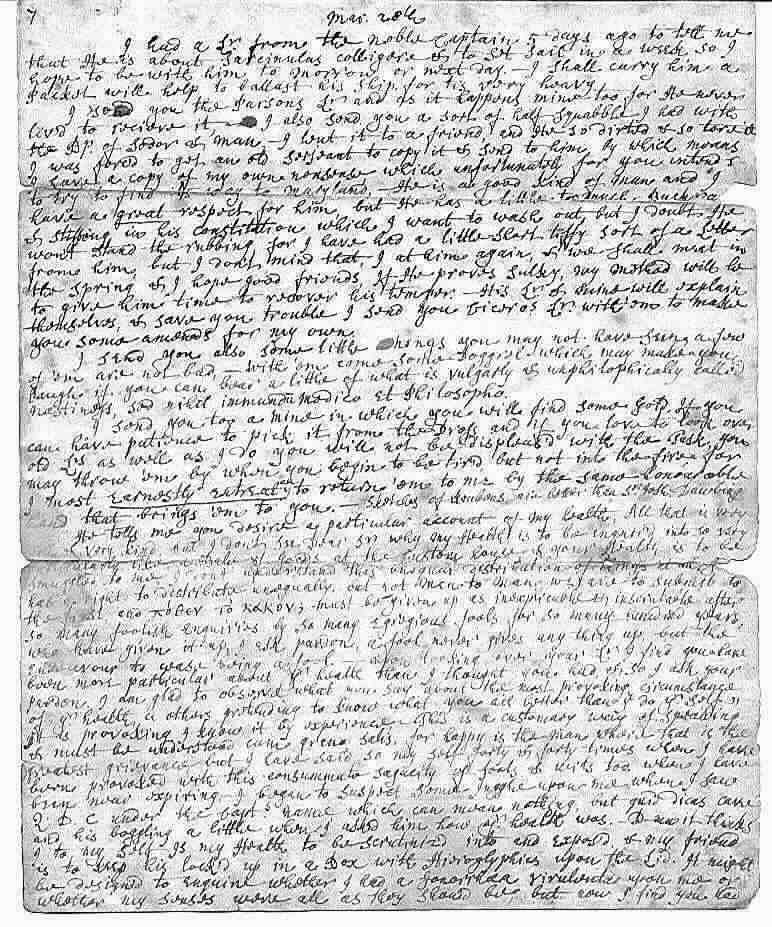 7
Mar. 28th
I had a Lr from the noble Captain 5 days ago to tell me
that He is about Sarcinulas colligere & to set sail in a week so I
hope to be with him to morrow or next day. — I shall carry him a
Packet will help to ballast his Ship, for tis very heavy
I send you the Parsons Lr and as it happens mine too for He never
lived to recieve it, I also send you a sort of half squabble I had with
the Bp. of Sodor & Man — I lent it to a friend, and He so dirted & so tore it
I was forced to get an old Servant to copy it & send to him, by which means
I have a copy of my own nonsense which unfortunately for you intends
to try to find its way to Maryland. — He is a good kind of man and I
have a great respect for him, but He has a little too much
& in his constitution which I want to wash out, but I doubt He
wont stand the rubbing for I have had a little short tiffy sort of a Letter
from him, but I dont mind that I at him again, & we shall meat in
the spring & I hope good friends If He proves sulky, my method will be
to give him time to recover his temper. — His Lr & mine will explain
themselves, & save you trouble I send you Ciceros Lr. with 'em to make
you some amends for my own.
I send you also some little things you may not have seen, a few
of 'em are not bad — with 'em come some Doggrel which may make you
laugh if you can bear a little of what is vulgarly & unphilosophically called
nastiness, sed nihil immundum Medico et Philosopho.
I send you too a mine in which you will find some Gold. If you
can have patience to pick it from the Dross and if you love to look over
old Lrs as well as I do you will not be displeased with the task, you
may throw 'em by when you begin to be tired, but not into the fire for
I most Earnestly Entreat you to return 'em to me by the same Honourable
Hand that brings 'em to you. — Sketches of Rubens are better than
He tells me you desire a particular account of my health. All that is very
very kind but I dont see Dear Sr why my Health is to be enquired into so very
exactly like contraband goods at the Custom house & your Health is to be
smuggled to me I dont understand this unequal distribution of things
has a right to distribute unequally, but not Men to Man. We are to submit to
the and ποθεν το κακον; must be given up as inexplicable & inscrutable after
so many foolish enquiries of so many Egregious fools for so many hundred years,
who have given it up, I ask pardon, a fool never gives any thing up, but the
endeavour to cease being a fool — upon looking over your Lr I find you have
been more particular about yr health than I thought you had, & so I ask your
pardon. I am glad to observe what you say about the most provoking circumstance
of yr health, is others pretending to know what you ail better than you do yr self
It is provoking I know it by experience. This is a customary way of speaking
& must be understood cum grano salis, for happy is the man where that is the
greatest grievance but I have said so my self forty & forty times when I have
been provoked with this consummate sagacity of fools & wits too when I have
been near expiring I began to suspect some Juggle upon me when I saw
Q D C under the Capts name which can mean nothing, but quid dicas cave
and his boggling a little when I asked him how yr health was. — D—n it thinks
I to my self Is my Health to be scrutinized into and exposed, & my friend
is to keep his lock'd up in a Box with Hieroglyphics upon the Lid. It might
be designed to enquire whether I had a Gonorrhaea virulenta upon me or
whether my senses were all as they should be, but now I find you had